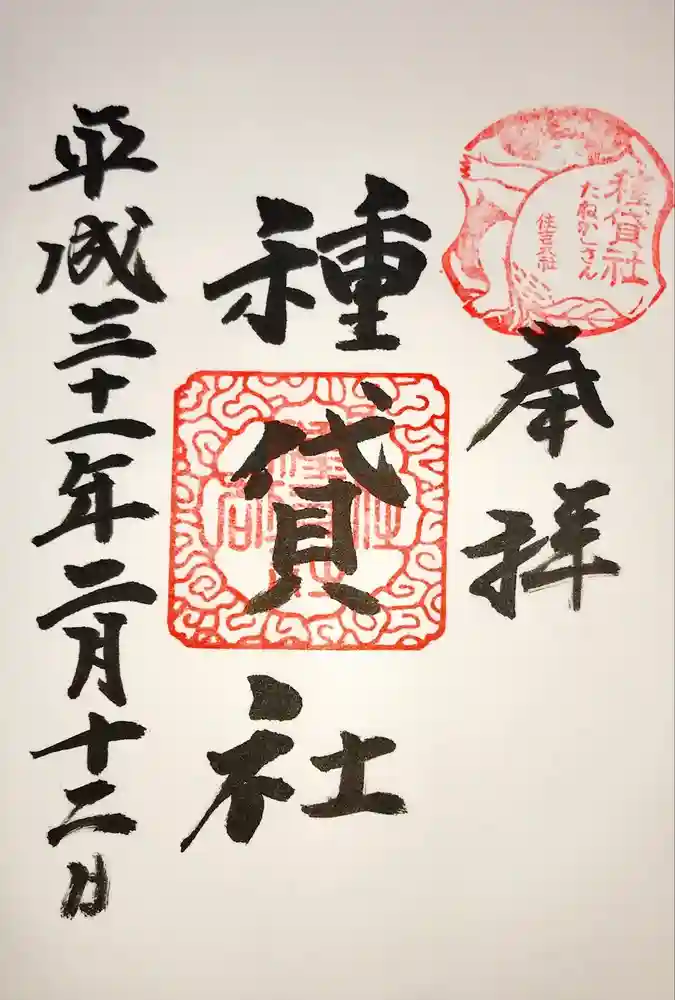 奉拝
種貸社
たねかしさん
住吉大社
種貸社
平成三十一年二月十二日